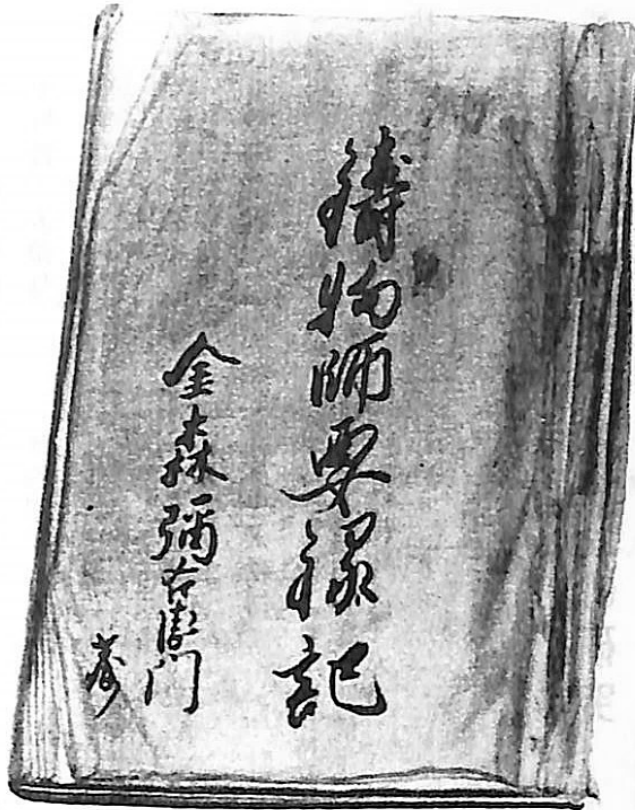 鋳物師要録記
金森彌右衛門